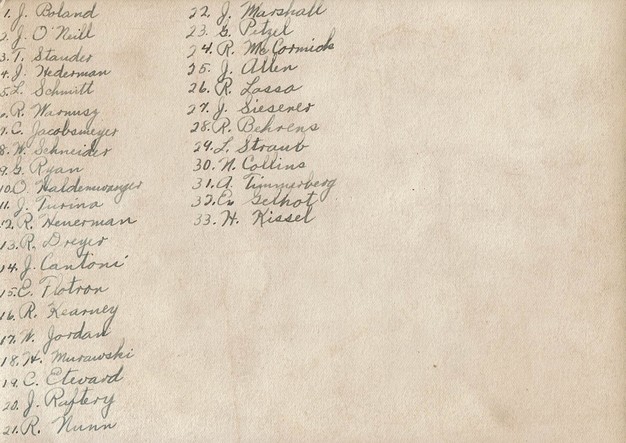 1. J. Boland
2. J. O'Neill
3. T. Stauder
4. J. Hederman
5. L. Schmitt
6. R. Warnusz
7. C. Jacobsmeyer
8. W. Schneider
9. G. Ryan
10. O. Haldenwanger
11. J. Turina
12. R. Henerman
13. R. Dreyer
14. J. Cantoni
15. C. Flotron
16. R. Kearney
17. W. Jordan
18. H. Murawski
19. C. Etevard
20. J. Raftery
21. R. Nunn
22. J. Marshall
23. G. Petzel
24. R. McCormick
25. J. Allen
26. R. Lasso
27. J. Siesener
28. R. Behrens
29. L. Straub
30. N. Collins
31. A. Timmerberg
32. E. Gelhot
33. H. Kissel